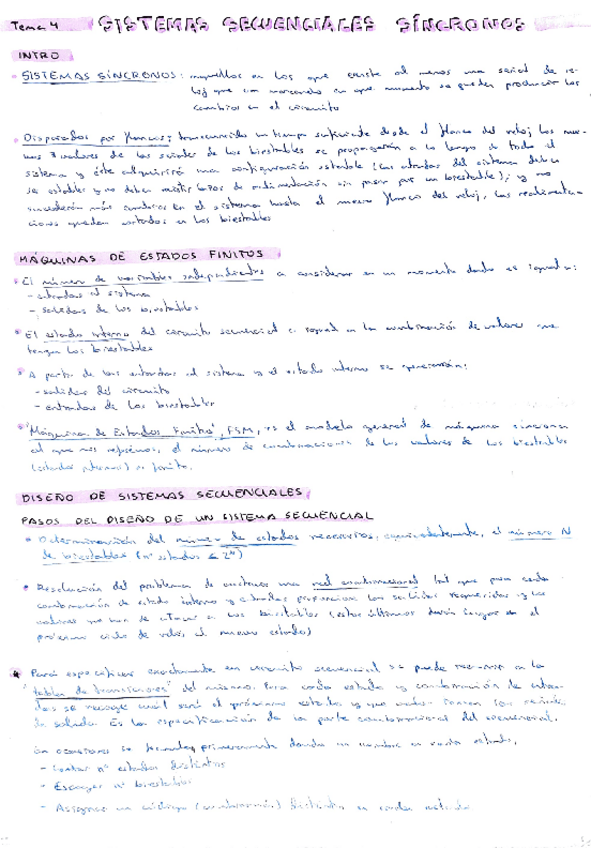 Tema 4 SISTEMAS SECUENCIALES SÍNCRONOS
INTRO
SISTEMAS SÍNCRONOS: aquellos en los que existe al menos una señal de re-
loj que va marcando en que momento se pueden producir los
cambios en el circuito
Disparados por flancos: transcurrido un tiempo suficiente desde el flanco del reloj los nue-
vos valores de las salidas de los biestables se propagarán a lo largo de todo el
sistema y éste adquirirá una configuración estable (las entradas del sistema deben
ser estables y no deben existir lazos de realimentación sin pasar por un biestable); y no
sucederán más cambios en el sistema hasta el nuevo flanco del reloj. Las realimenta-
ciones quedan cortadas en los biestables
MÁQUINAS DE ESTADOS FINITOS
El número de variables independientes a considerar en un momento dado es igual a:
- entradas al sistema
- salidas de los biestables
El estado interno del circuito secuencial es igual a la combinación de valores que
tengan los biestables
A partir de las entradas al sistema y el estado interno se generarán:
- salidas del circuito
- entradas de los biestables
"Máquina de Estados Finitos", FSM, es el modelo general de máquina síncrona
al que nos referimos, el número de combinaciones de los valores de los biestables
(estados internos) es finito.
DISEÑO DE SISTEMAS SECUENCIALES
PASOS DEL DISEÑO DE UN SISTEMA SECUENCIAL
Determinación del número de estados necesarios, equivalentemente, el número N
de biestables (nº estados ≤ 2ᴺ)
Resolución del problema de construir una red combinacional tal que para cada
combinación de estado interno y entradas proporcione las salidas requeridas y los
valores que han de atacar a los biestables (estos últimos darán lugar en el
próximo ciclo de reloj al nuevo estado)
Para especificar exactamente un circuito secuencial se puede recurrir a la
"tabla de transiciones" del mismo. Para cada estado y combinación de entra-
das se recoge cuál será el próximo estado y que valor toman las variables
de salida. Es la especificación de la parte combinacional del secuencial.
En ocasiones se primeramente dando un nombre a cada estado.
- Contar nº estados distintos
- Escoger nº biestables
- Asignar un código (combinación) distinto a cada estado